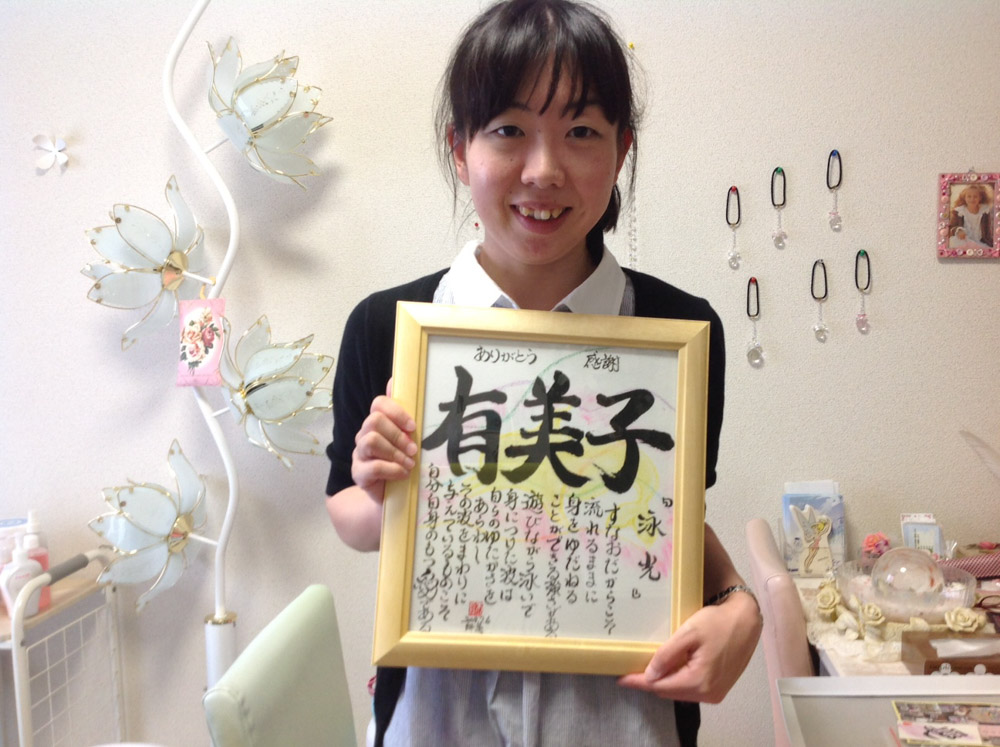 ありがとう 感謝
有美子
泳光
すなおだからこそ
流れるままに
身をゆだねる
ことができる
遊びながら泳いで
身につけた波は
自らのゆたかさを
あらわし
その波をまわりに
与えている
自分自身のもつ